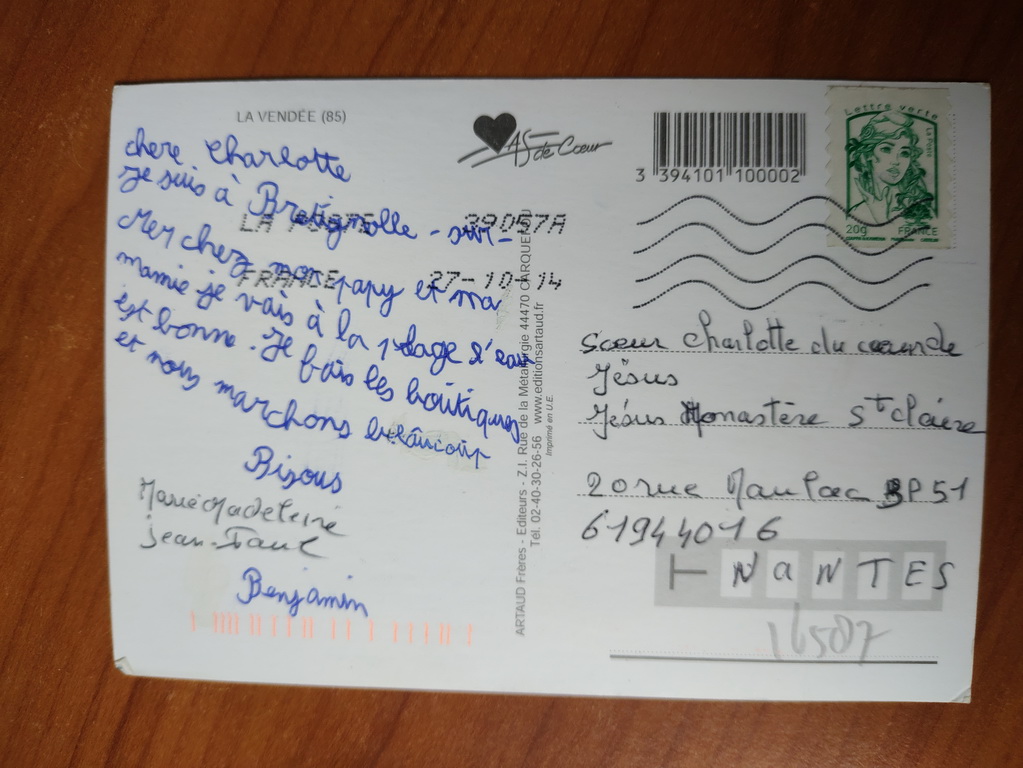 LA VENDÉE (85)
As de Cœur
3 394101 100002
Lettre verte
La Poste
20g
FRANCE
LA POSTE 39057A
FRANCE 27-10-14
chere Charlotte
Je suis à Bretignolle-sur-
Mer chez mon papy et ma
mamie je vais à la plage l'eau
est bonne. Je fais les boutiques
et nous marchons beaucoup
Bisous
Marie Madeleine
Jean-Paul
Benjamin
ARTAUD Frères - Editeurs - Z.I. Rue de la Métallurgie 44470 CARQUEFOU
Tél. 02-40-30-26-56 www.editionsartaud.fr
Imprimé en U.E.
Sœur Charlotte du
Jésus
Jésus Monastère St Claire
20 rue BP 51
61944016
NANTES
16507